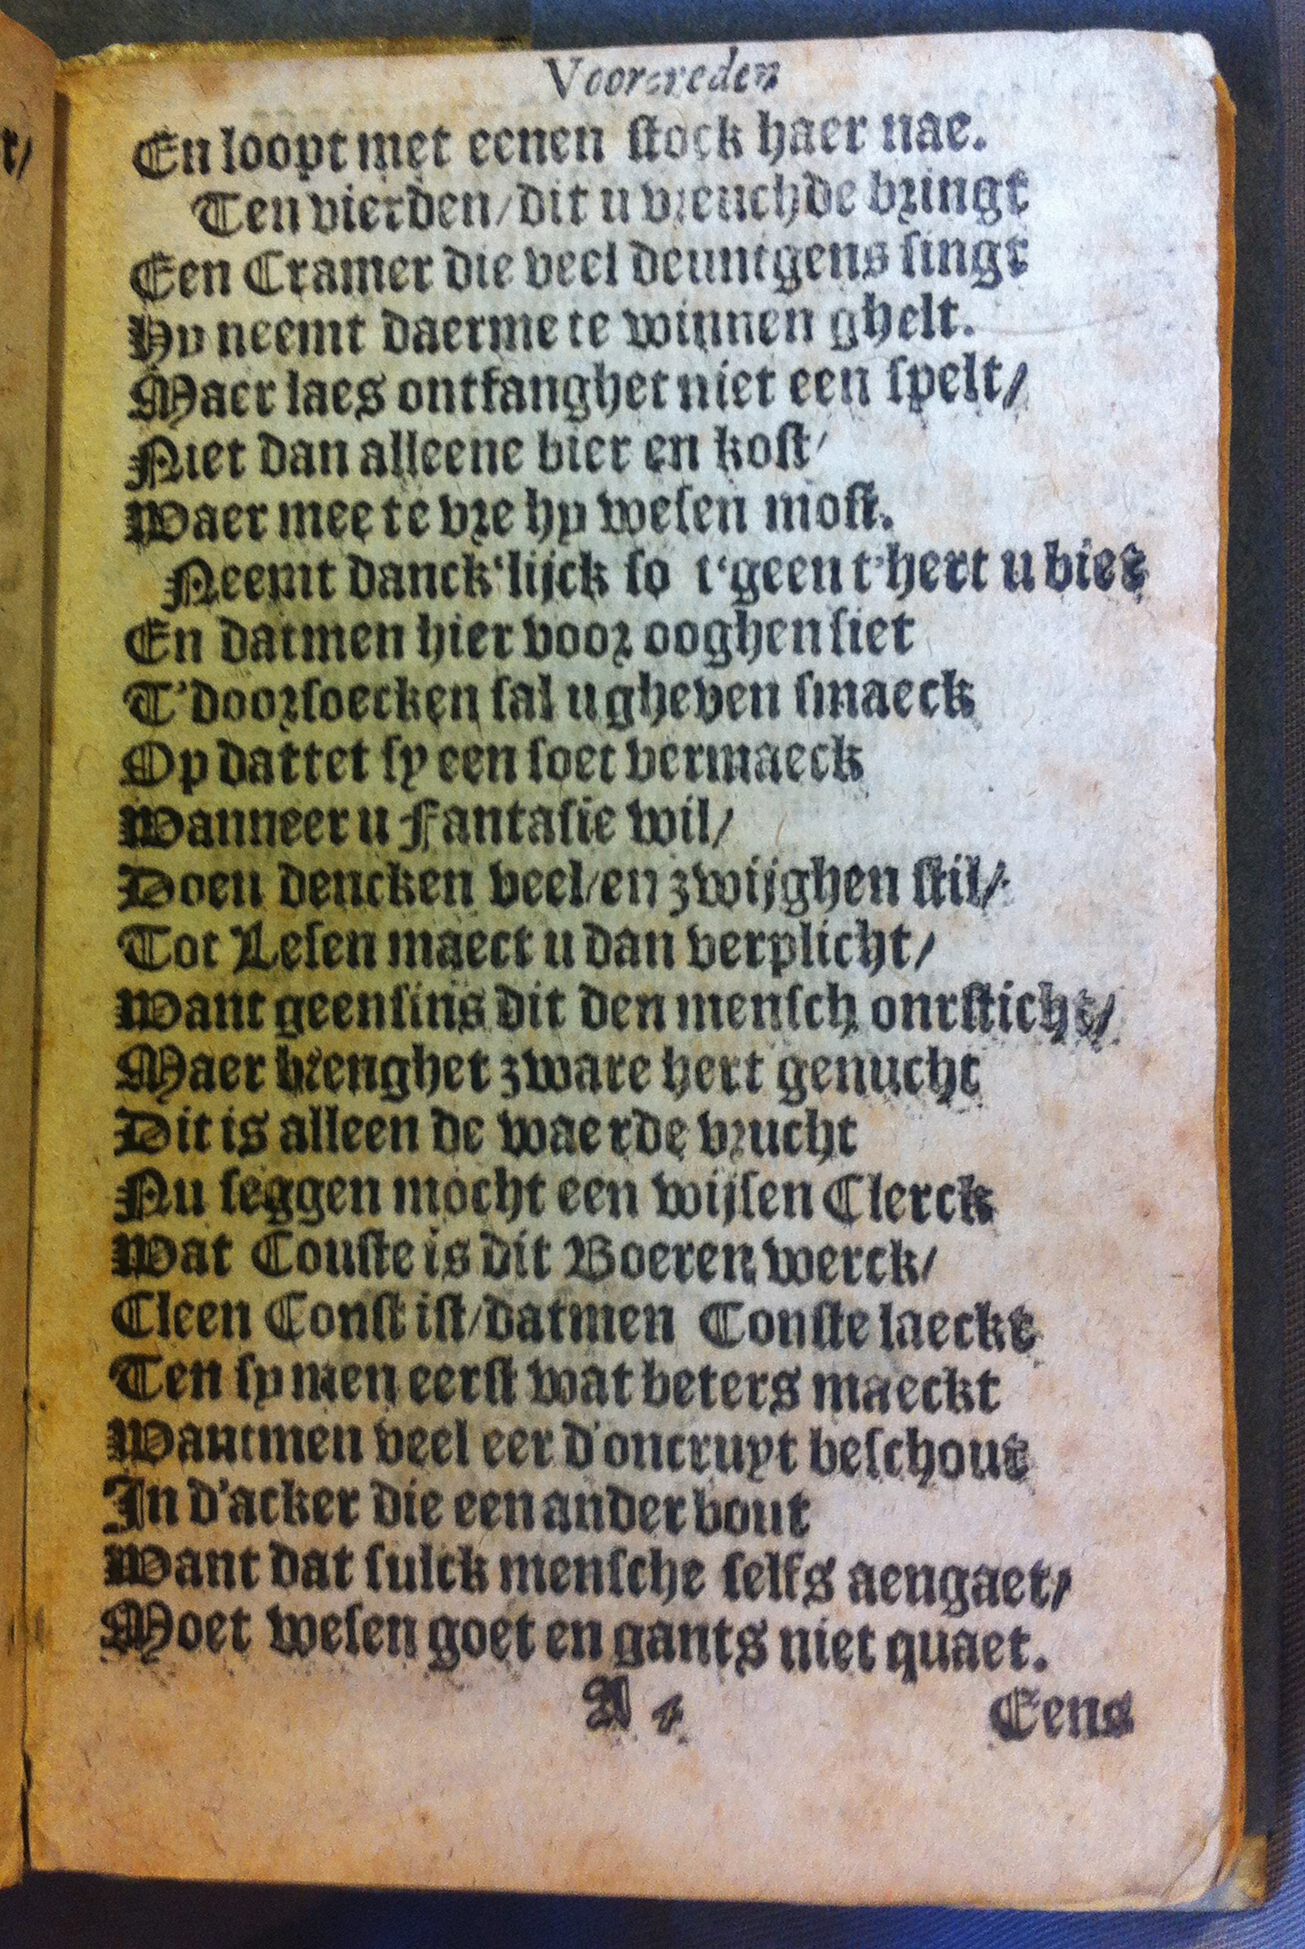 Voorreden
En loopt met eenen stock haer nae.
Ten vierden/dit u vreuchde bringt
Een Cramer die veel deuntgens singt
Hy neemt daerme te winnen ghelt.
Maer laes ontfanghet niet een spelt/
Niet dan alleene bier en kost/
Waer mee te vre hy wesen most.
Neemt danck‘lijck so t‘geen t’hert u biet
En datmen hier voor ooghen siet
T’doorsoecken sal u gheven smaeck
Op dattet sy een soet vermaeck
Wanneer u Fantasie wil/
Doen dencken veel/en zwijghen stil/
Tot Lesen maect u dan verplicht/
Want geensins dit den mensch ontsticht/
Maer brenghet zware hert genucht
Dit is alleen de waerde vrucht
Nu seggen mocht een wijsen Clerck
Wat Conste is dit Boeren werck/
Cleen Const ist/datmen Conste laeckt
Ten sy men eerst wat beters maeckt
Wantmen veel eer d'oncruyt beschout
In d’acker die een ander bout
Want dat sulck mensche selfs aengaet/
Moet wesen goet en gants niet quaet.
A 4
Eens